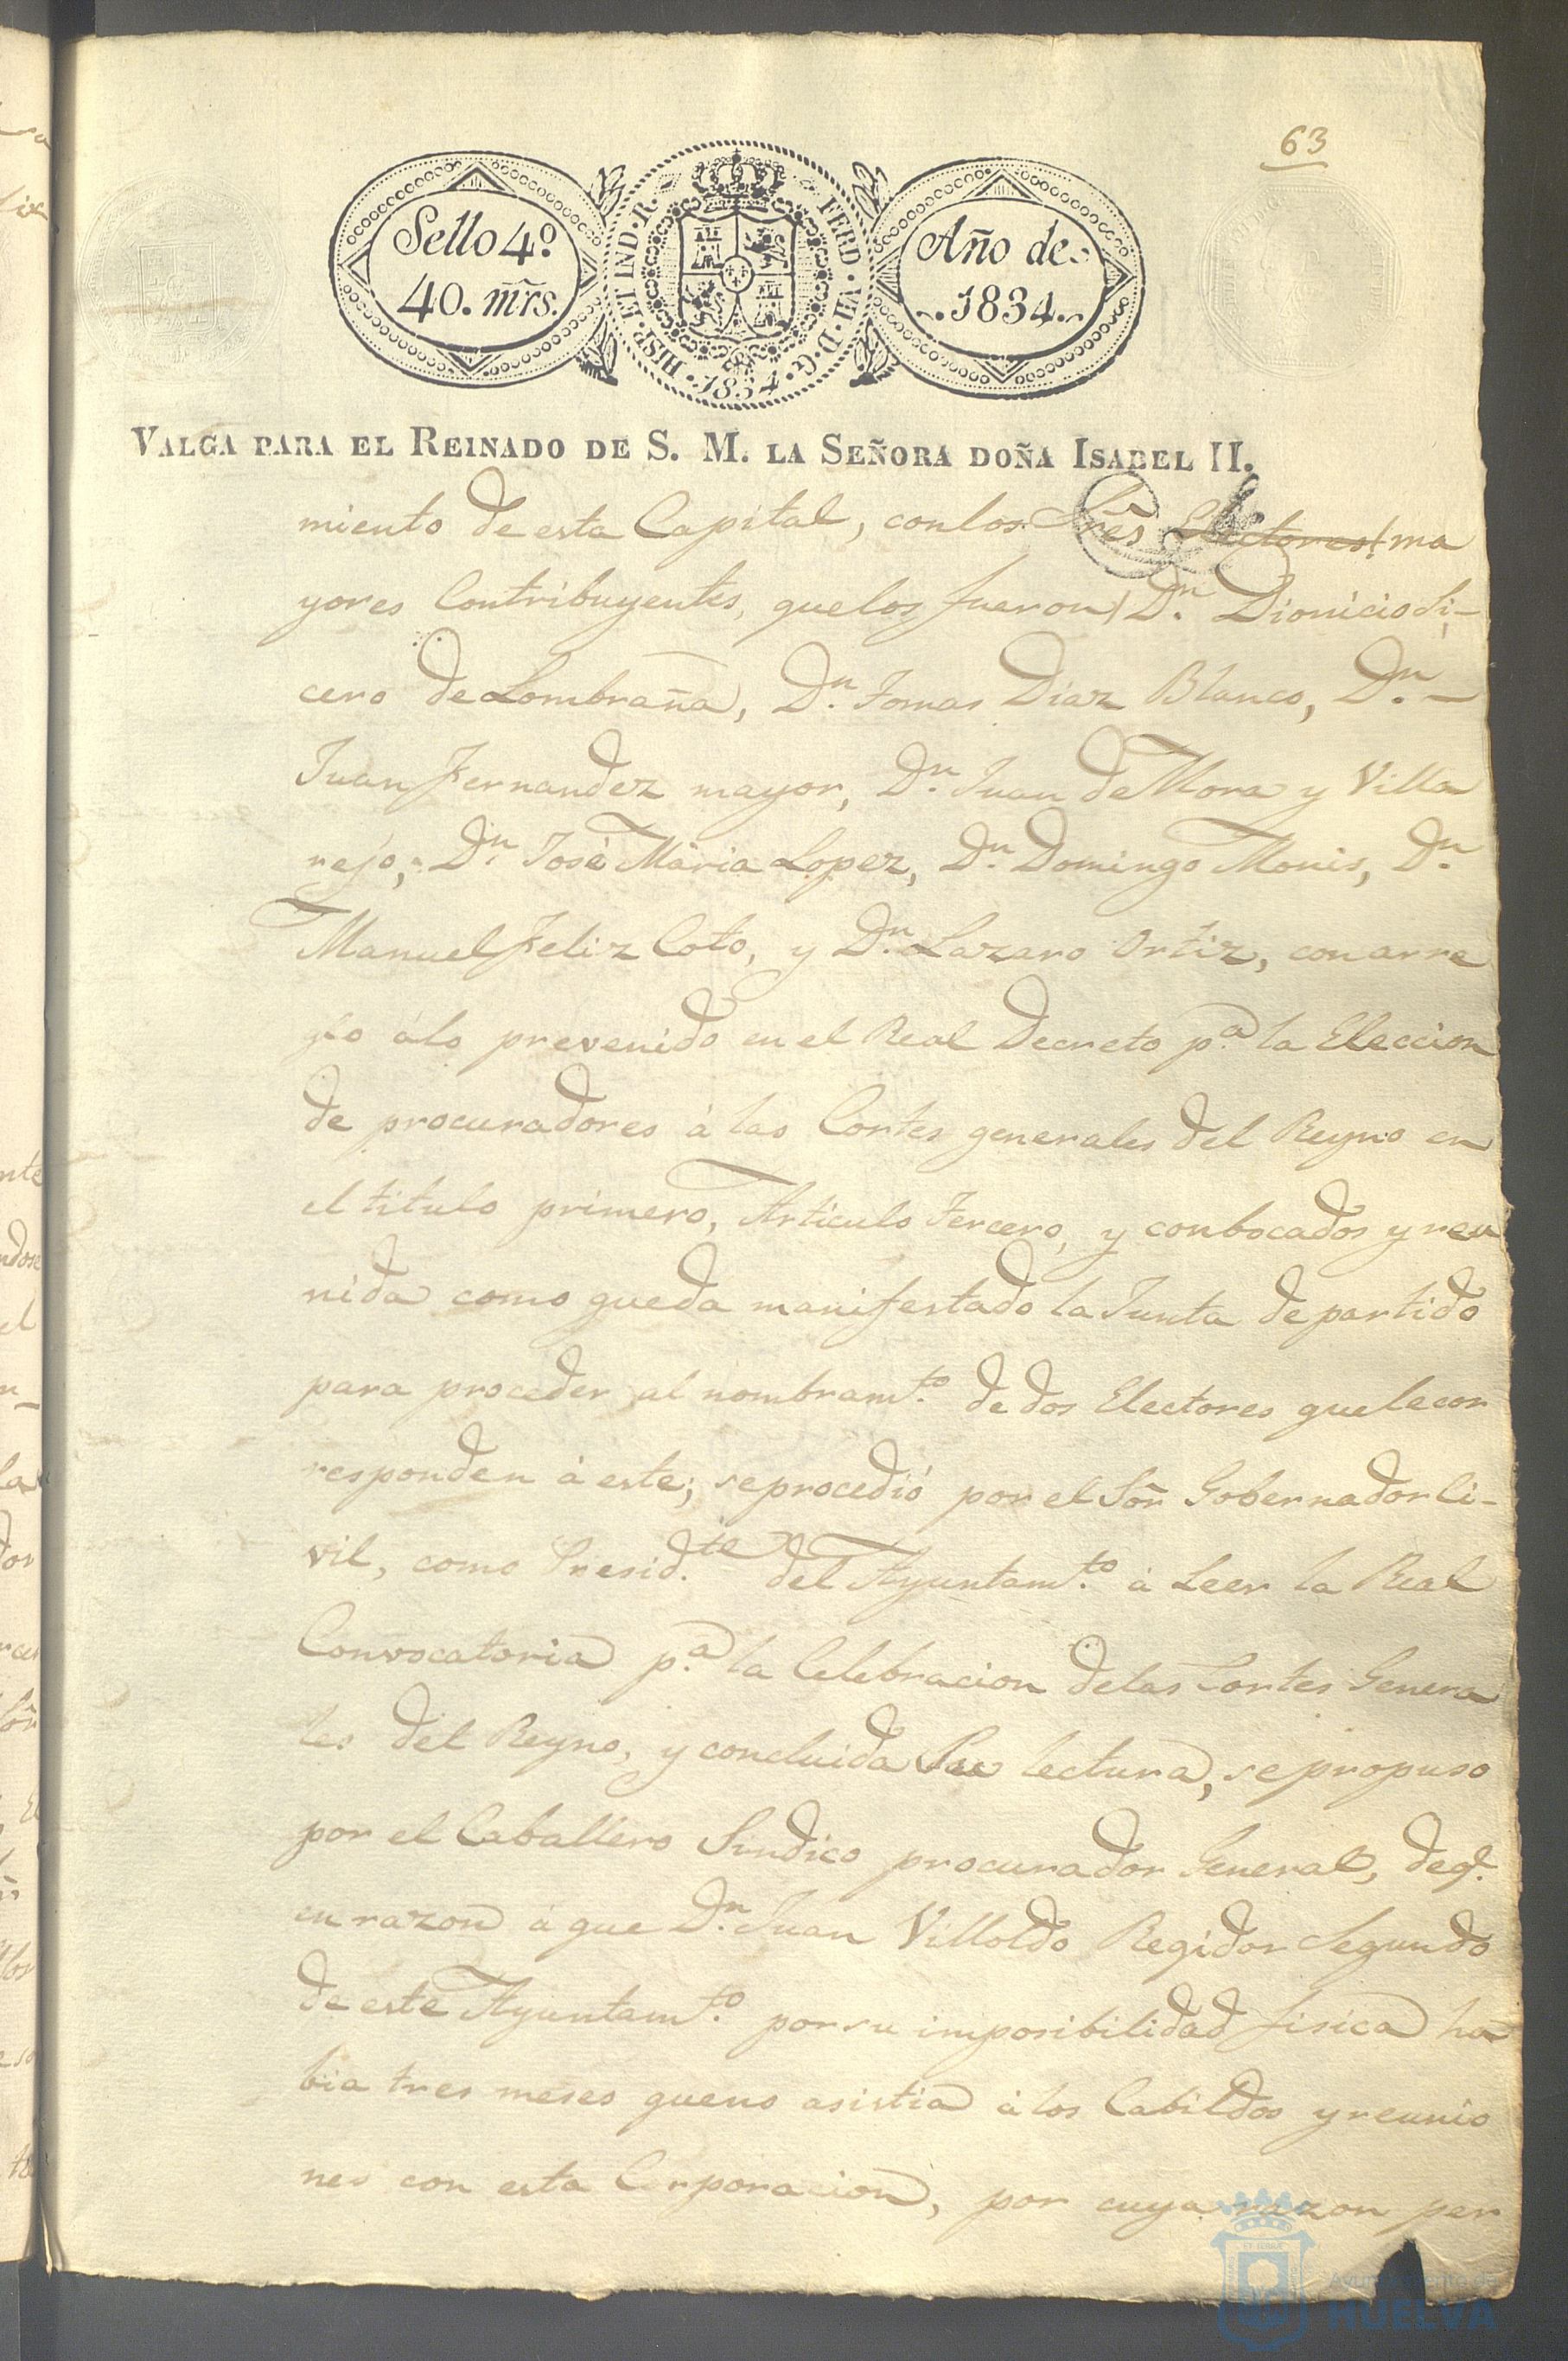 63
Sello 4º
40. mrs.
HISP. ET IND. R.
FERD. VII. D. G.
1834
Año de
1834.
VALGA PARA EL REINADO DE S. M. LA SEÑORA DOÑA ISABEL II.
miento de esta Capital, con los Sres Electores ma
yores Contribuyentes, que los fueron Dn. Dionicio Si-
cero de Lombraña, Dn. Tomas Diaz Blanco, Dn. -
Juan Fernandez mayor, Dn. Juan de Mora y Villa
rejo, Dn. José Maria Lopez, Dn. Domingo Monis, Dn.
Manuel Feliz Coto, y Dn. Lazaro Ortiz, con arre
glo á lo prevenido en el Real Decreto pa. la Eleccion
de procuradores á las Cortes generales del Reyno en
el titulo primero, Articulo Tercero, y conbocados y reu
nida como queda manifestado la Junta de partido
para proceder al nombramto. de dos Electores que le cor
responden á este; se procedió por el Sor. Gobernador Ci-
vil, como Presidte. del Ayuntamto. á Leer la Real
Convocatoria pa. la Celebracion de las Cortes Genera
les del Reyno, y concluida Su lectura, se propuso
por el Caballero Sindico procurador General, de q.
en razon á que Dn. Juan Villoldo Regidor Segundo
de este Ayuntamto. por su imposibilidad fisica ha
bia tres meses que no asistia á los Cabildos y reunio
nes con esta Corporacion, por cuya razon per
Ayuntamiento de
HUELVA